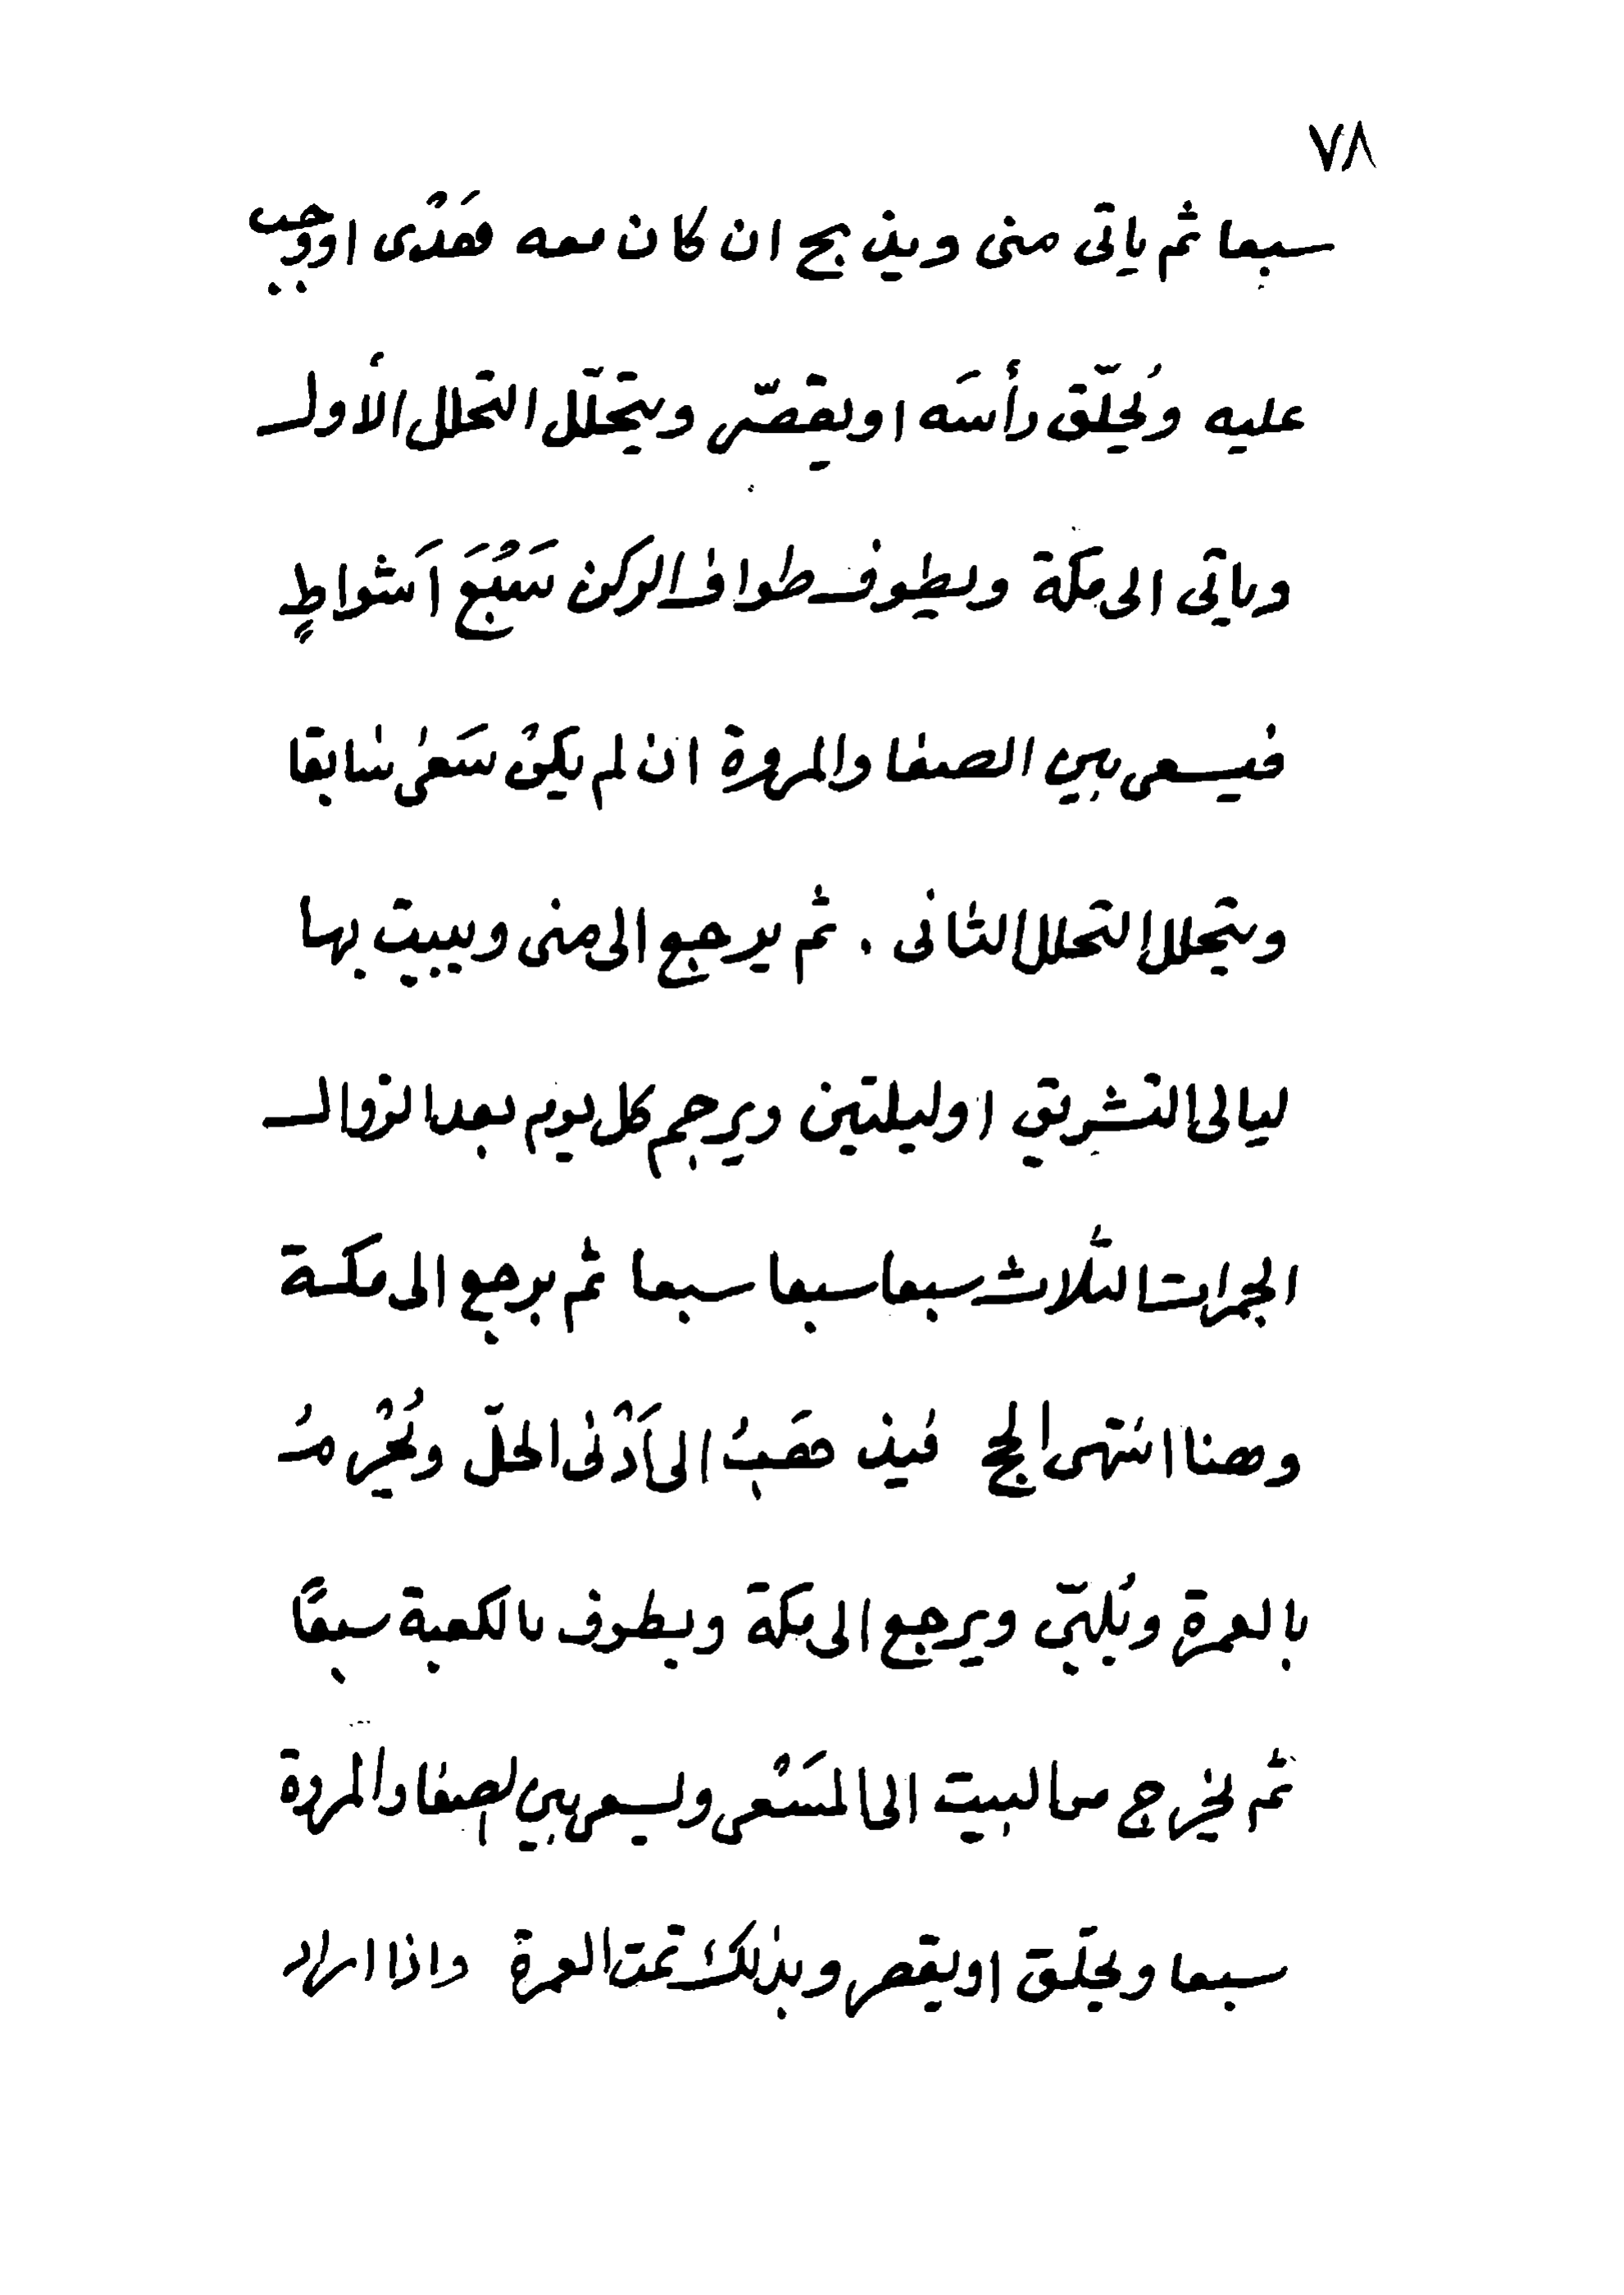 ٧٨
سبعا ثم ياتى منى ويذبح ان كان معه هَدْى او وجب
عليه ويُحلّق رأسَه او يقصّر ويتحلّل التحلل الأول
وياتى الى مكة ويطوف طواف الركن سَبْعَ اَشواطٍ
فيسعى بين الصفا والمروة ان لم يكنْ سَعىٰ سَابقا
ويتحلل التحلل الثانى . ثم يرجع الى منى ويبيت بها
ليالى التشريق او ليلتين ويرجم كل يوم بعد الزوال
الجمرات الثّلاث سبعا سبعا سبعا ثم يرجع الى مكة
وهنا انتهى الحج فيذهَبُ الى اَدْنى الحلّ ويُحْرمُ
بالعمرة ويُلبّى ويرجع الى مكة ويطوف بالكعبة سبعًا
ثم يخرج من البيت الى المسَعْى ويسعى بين الصفا والمروة
سبعا ويحلّق او يقصر وبذلك تمت العمرة واذا اراد